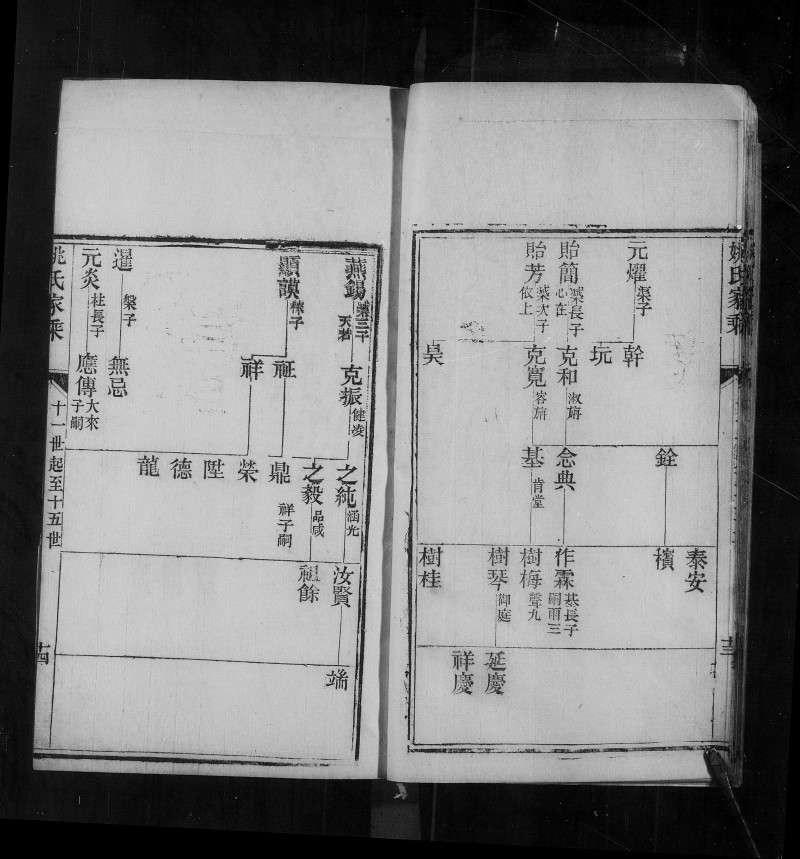 姚氏家乘
元燿 渠子
貽簡 橤長子 心在
貽芳 橤次子 依上
幹
玩
克和 淑旃
克寬 容旃
昊
銓
念典
基 肯堂
泰安
檳
作霖 基長子 嗣雨三
樹梅 聲九
樹琴 御庭
樹桂
延慶
祥慶
燕錫
顯謨
暹
元炎 社長子
克振 健凌
祉
祥
無忌
應傳 大來子嗣
之純 涵光
之毅 品咸
鼎 祥子嗣
榮
陞
德
龍
汝賢
祖餘
端
姚氏家乘
十一世起至十五世
十四